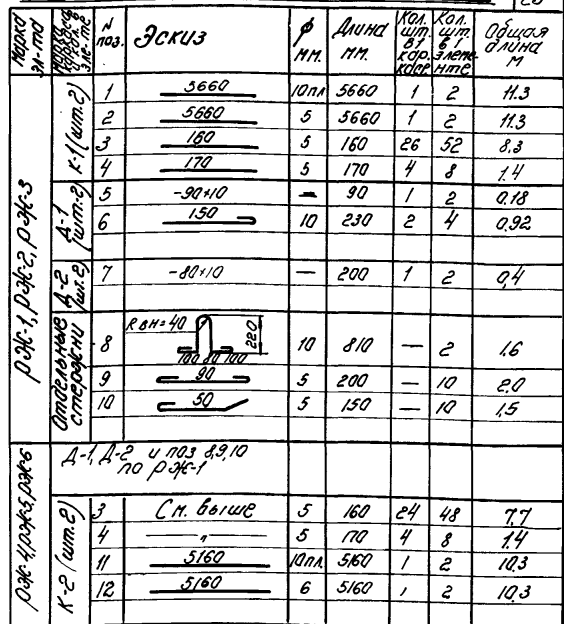 20
Марка эл-та
Марка каркаса и дов. в эле-те
N поз.
Эскиз
ϕ мм.
Длина мм.
Кол. шт. в 1 кар-касе
Кол. шт. в 1 элеме-нте
Общая длина м
рэж-1, рэж-2, рэж-3
К-1 (шт. 2)
1 5660 10пл 5660 1 2 11.3
2 5660 5 5660 1 2 11.3
3 160 5 160 26 52 8,3
4 170 5 170 4 8 1.4
Д-1 (шт.-2)
5 -90×10 — 90 1 2 0.18
6 150 10 230 2 4 0,92
Д-2 (шт. 2)
7 -80×10 — 200 1 2 0,4
Отдельные стержни
8 R вн=40 220 100 80 100 10 810 — 2 1.6
9 90 5 200 — 10 2,0
10 50 5 150 — 10 1,5
рэж-4, рэж-5, рэж-6
Д-1, Д-2 и поз 8,9,10
по рэж-1
К-2 (шт. 2)
3 См. выше 5 160 24 48 7,7
4 —"— 5 170 4 8 1.4
11 5160 10пл. 5160 1 2 10,3
12 5160 6 5160 1 2 10,3